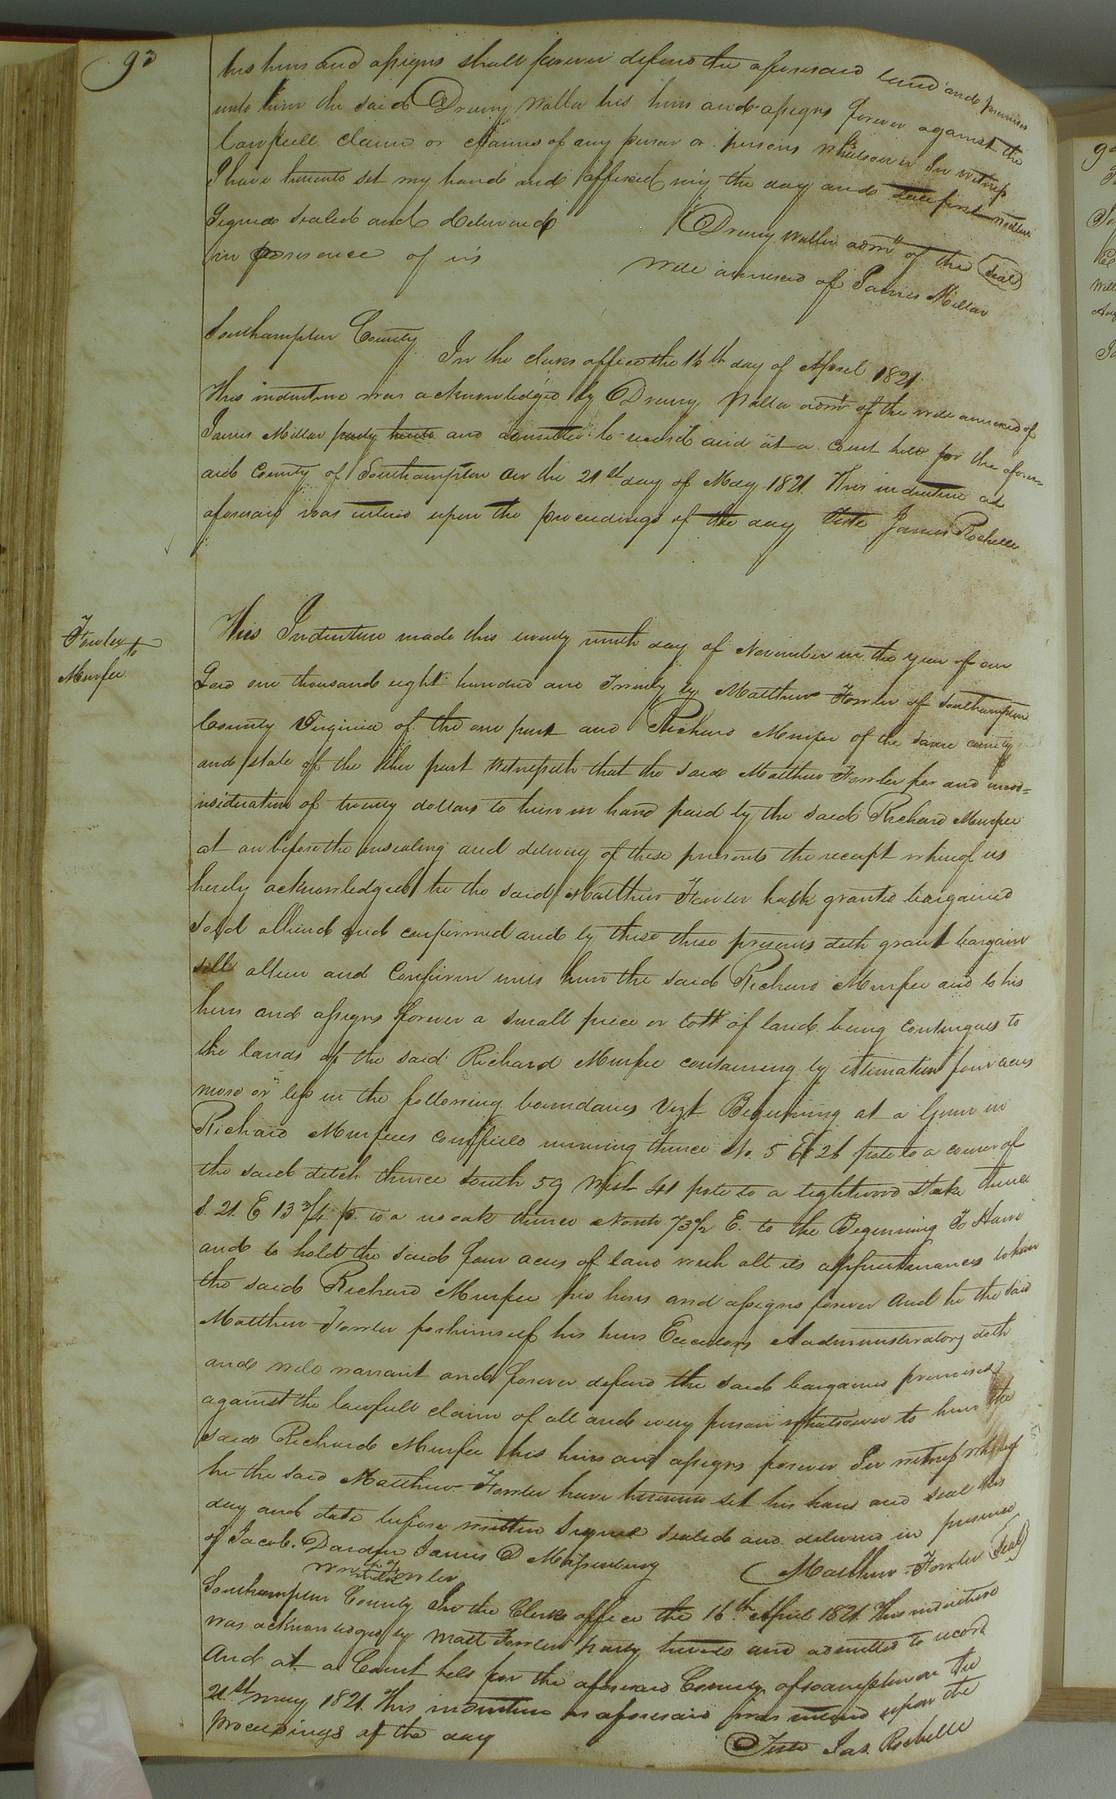 92
his heirs and assigns shall forever defend the aforesaid land and premises
unto him the said Drewry Waller his heirs and assigns forever against the
lawfull claim or claims of any person or persons whatsoever In witness
I have hereunto set my hand and affixed my the day and date first written
Signed sealed and delivered Drewry Waller adm of the Seal
in presence of us
will annexed of James Millar
Southampton County
In the clerks office the 16th day of April 1821
This indenture was acknowledged by Drewry Waller adm of the will annexed of
James Millar party hereto and admitted to record and at a court held for the afore-
aid County of Southampton on the 21st day of May 1821 This indenture as
aforesaid was entered upon the proceedings of the day Teste James Rochelle
Fowler
to
Murfee
This Indenture made this twenty ninth day of November in the year of our
Lord one thousand eight hundred and Twenty by Matthew Fowler of Southampton
County Virginia of the one part and Richard Murfee of the same county
and state of the other part Witnesseth that the said Matthew Fowler for and in con=
nsideration of twenty dollars to him in hand paid by the said Richard Murfee
at or before the ensealing and delivery of these presents the receipt whereof is
hereby acknowledged he the said Matthew Fowler hath granted bargained
sold aliend and confirmed and by these these presents doth grant bargain
sell alien and confirm unto him the said Richard Murfee and to his
heirs and assigns forever a small piece or lott of land being contingues to
the lands of the said Richard Murfee containing by estimation four acres
more or less in the following boundaries Vizt Beginning at a Gum in
Richard Murfees cornfield running thence No. 5 E 26 pole to a corner of
the said ditch thence South 59 West 41 pole to a lightwood stake thence
S. 21 E 13 3/4 p. to a oak thence North 73 1/2 E. to the Beginning To Have
and to hold the said four acres of land with all its appurtenances to him
the said Richard Murfee his heirs and assigns forever And he the said
Matthew Fowler for himself his heirs Executors Aadministrators doth
and will warrant and forever defend the said bargained premises
against the lawfull claim of all and every person whatsoever to him the
said Richard Murfee his heirs and assigns forever In witness whereof
he the said Matthew Fowler have hereunto set his hand and seal this
day and date before written Signed sealed and delivered in presence
of Jacob. Darden James D Massenburg Matthew Fowler Seal
Southampton County In the Clerks office the 16th April 1821 This indenture
was acknowledged by Matt Fowler party hereto and admitted to record
And at a Court held for the aforesaid County of Southampton on the
21st may 1821 This indenture as aforesaid was entered upon the
proceedings of the day Teste Jas. Rochelle